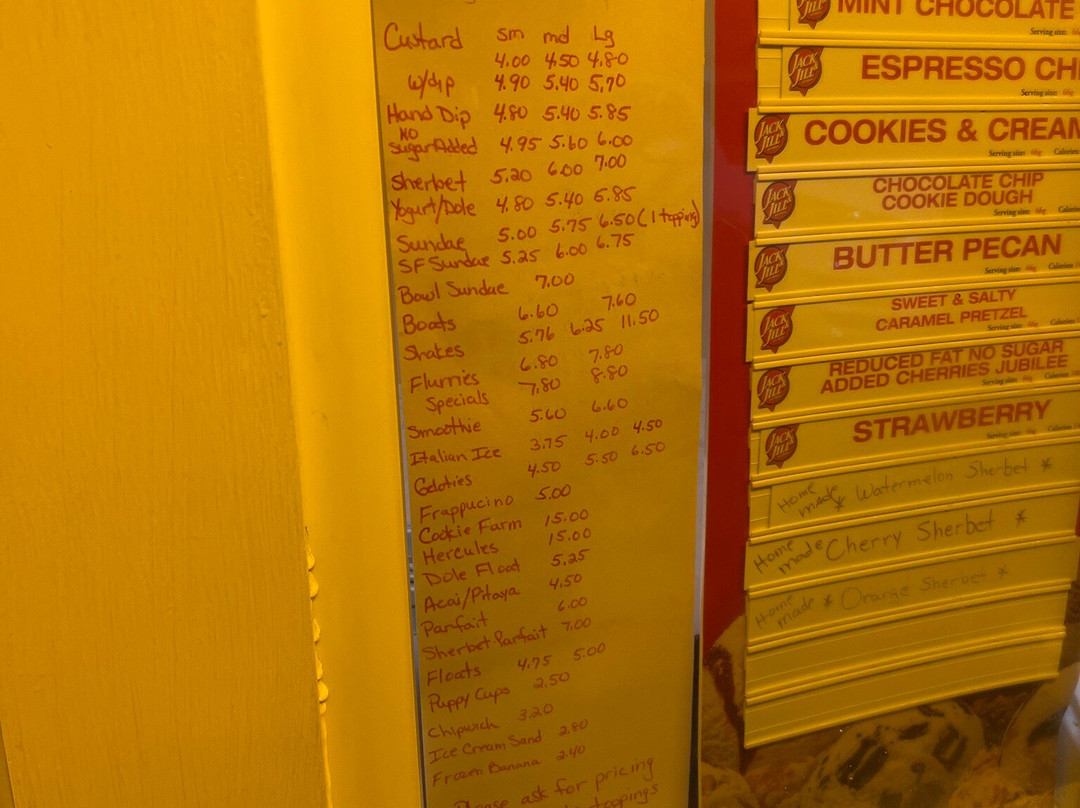 Custard sm md Lg
4.00 4.50 4.80
w/dip 4.90 5.40 5.70
Hand Dip 4.80 5.40 5.85
NO
Sugar Added 4.95 5.60 6.00
Sherbet 5.20 6.00 7.00
Yogurt/Dole 4.80 5.40 5.85
Sundae 5.00 5.75 6.50 (1 topping)
SF Sundae 5.25 6.00 6.75
Bowl Sundae 7.00
Boats 6.60 7.60
Shakes 5.76 6.25 11.50
Flurries 6.80 7.80
Specials 7.80 8.80
Smoothie 5.60 6.60
Italian Ice 3.75 4.00 4.50
Gelaties 4.50 5.50 6.50
Frappucino 5.00
Cookie Farm 15.00
Hercules 15.00
Dole Float 5.25
Acai/Pitaya 4.50
Parfait 6.00
Sherbet Parfait 7.00
Floats 4.75 5.00
Puppy Cups 2.50
Chipwich 3.20
Ice Cream Sand 2.80
Frozen Banana 2.40
Please ask for pricing
toppings
JILL MINT CHOCOLATE
Serving size:
JACK & JILL ESPRESSO CHI
Serving size: 66g
JACK & JILL COOKIES & CREAM
Serving size: 66g Calories
JACK & JILL CHOCOLATE CHIP
COOKIE DOUGH
Serving size: 66g Calori
JACK & JILL BUTTER PECAN
Serving size: 66g Calories
JACK & JILL SWEET & SALTY
CARAMEL PRETZEL
Serving size: 66g Calories
JACK & JILL REDUCED FAT NO SUGAR
ADDED CHERRIES JUBILEE
Serving size: 66g Calories
JACK & JILL STRAWBERRY
Serving size: 66g Calories
Home made * Watermelon Sherbet *
Home made Cherry Sherbet *
Home made * Orange Sherbet *